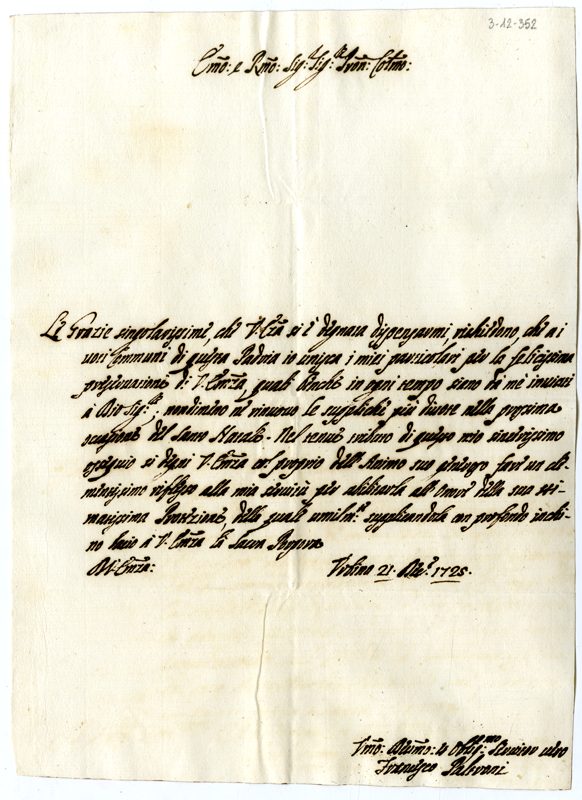 3-12-352
Emo: e Rmo: Sig:r Sig:r Pron: Colmo:
Le Grazie singolarissime, che V. Emza si è degnata dispensarmi, richiedono, che a i
voti communi di questa Patria io unisca i miei particolari per la felicissima
preservazione di V. Emza, quali benche in ogni tempo siano da me inviati
a Dio Sig:re, nondimeno ne rinuovo le suppliche più divote nella prossima
occasione del Santo Natale. Nel tenue tributo di questo mio sincerissimo
ossequio si degni V. Emza col proprio dell'Animo suo generoso fare un be-
nignissimo riflesso alla mia servitù per abilitarla all'Onore della sua sti-
matissima Protezione, della quale umilm.te supplicandola con profondo inchi-
no bacio a V. Emza la Sacra Porpora
Di V. Emza:
Urbino 21. Xbre 1725.
Umo: Devmo: e Obblig:mo Servitor vero
Francesco